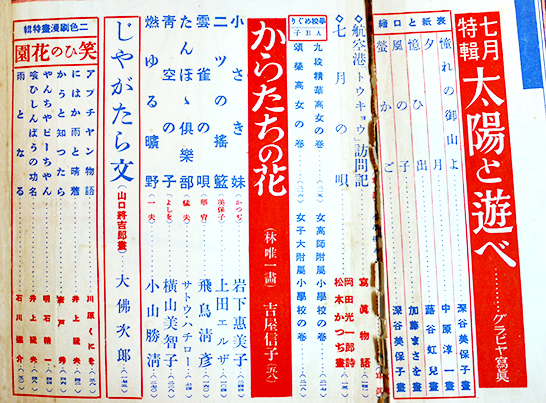 七月特輯 太陽と遊べ グラビヤ寫眞
表紙と口繪
憧れの御山よ 深谷美保子畫
夕月 中原淳一畫
憶ひ出 蕗谷虹兒畫
風の子 加藤まさを畫
螢かご 深谷美保子畫
◇航空港トウキョウ訪問記 寫眞物語
◇七月の唄 岡田光一郎詩 松本かつぢ畫
學校めぐり ABC子
九段精華高女の卷 女高師附屬小學校の卷
頌榮高女の卷 女子大附屬小學校の卷
からたちの花 (林唯一畫) 吉屋信子
小さき妹 (かつぢ) 岩下惠美子
二ツの搖籃 (美保子) 上田エルザ
雲雀の唄 (華宵) 飛鳥淸彥
たんぽゝ倶樂部 (猛夫) サトウハチロー
靑空の子 (よしを) 横山美智子
燃ゆる曠野 (一夫) 小山勝淸
じやがたら文 (山口將吉郎畫) 大佛次郎
二色刷漫畫特輯
笑ひの花園
アプチヤン物語 川原くにを
にはか雨と晴着 井上猛夫
からと知つたら 秀
やんちやピーちやん 明石精一
喰ひしんばうの功名 井上猛夫
雨となる 石川義介